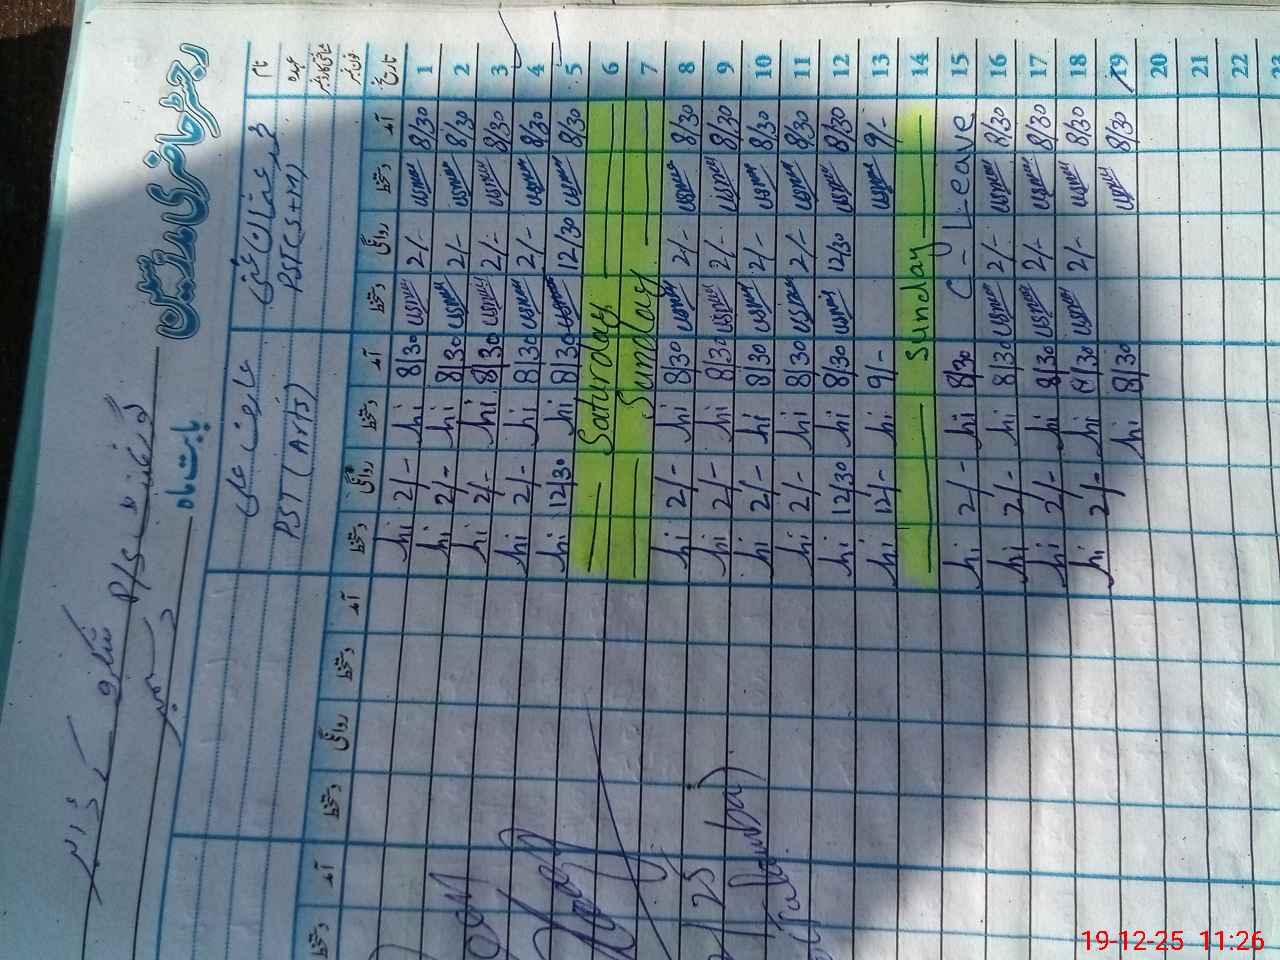 رجسٹر حاضری مدرسین
گورنمنٹ P/S
بابت ماہ دسمبر
نام محمد عثمان غنی عارف علی
عہدہ PST(S+M) PST (Arts)
شناختی کارڈ نمبر
فون نمبر
تاریخ آمد دستخط روانگی دستخط آمد دستخط روانگی دستخط آمد دستخط روانگی دستخط آمد دستخط
1 8/30 usman 2/- usman 8/30 hi 2/- hi
2 8/30 usman 2/- usman 8/30 hi 2/- hi
3 8/30 usman 2/- usman 8/30 hi 2/- hi
4 8/30 usman 2/- usman 8/30 hi 2/- hi
5 8/30 usman 12/30 usman 8/30 hi 12/30 hi
6 Saturday
7 Sunday
8 8/30 usman 2/- usman 8/30 hi 2/- hi
9 8/30 usman 2/- usman 8/30 hi 2/- hi
10 8/30 usman 2/- usman 8/30 hi 2/- hi
11 8/30 usman 2/- usman 8/30 hi 2/- hi
12 8/30 usman 12/30 usman 8/30 hi 12/30 hi
13 9/- usman 9/- hi 12/- hi
14 Sunday
15 C-Leave 8/30 hi 2/- hi
16 8/30 usman 2/- usman 8/30 hi 2/- hi
17 8/30 usman 2/- usman 8/30 hi 2/- hi
18 8/30 usman 2/- usman 8/30 hi 2/- hi
19 8/30 usman 8/30 hi
20
21
22
23
19-12-25 11:26